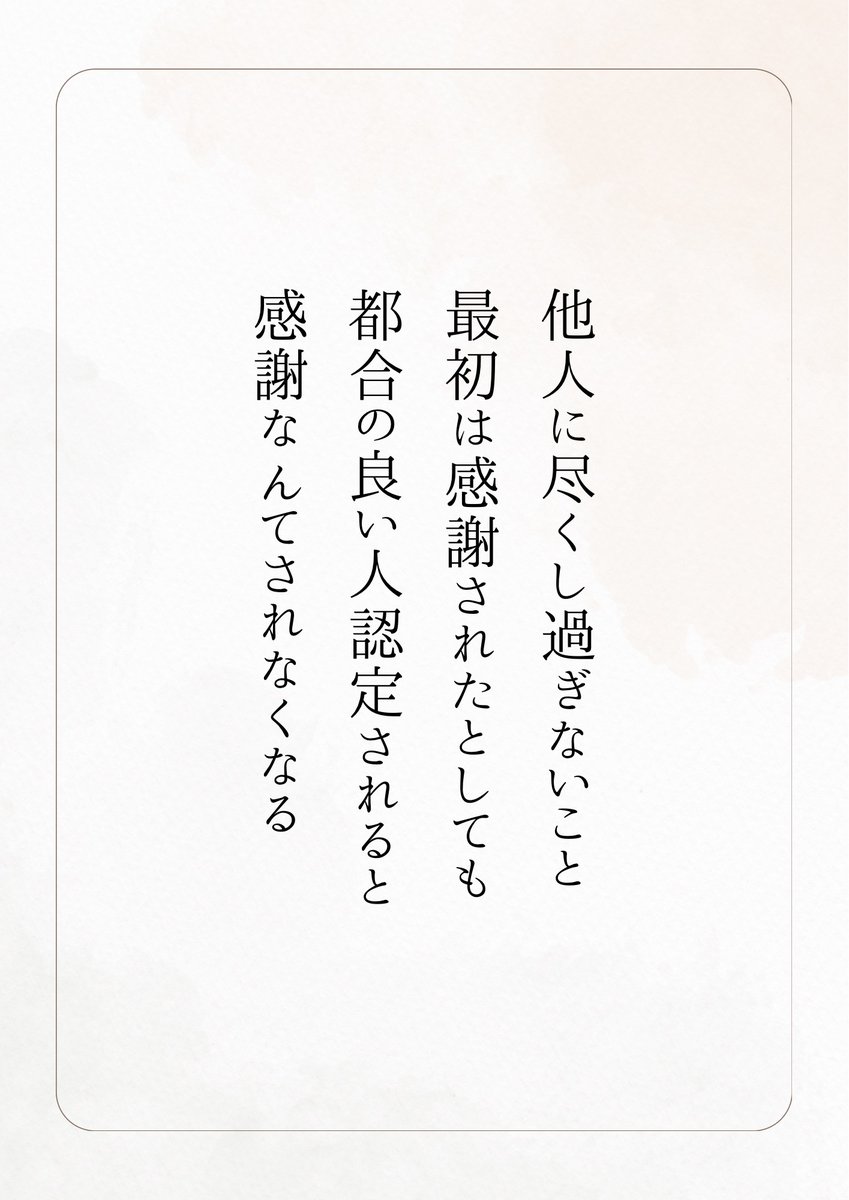 他人に尽くし過ぎないこと
最初は感謝されたとしても
都合の良い人認定されると
感謝なんてされなくなる